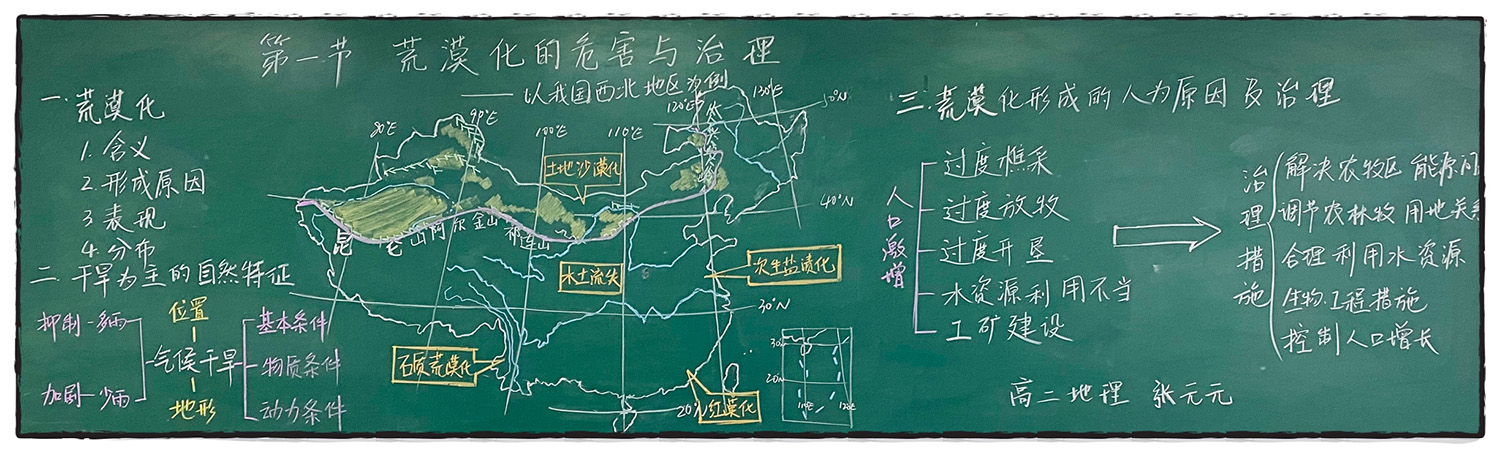 第一节 荒漠化的危害与治理
—— 以我国西北地区为例
一.荒漠化
1.含义
2.形成原因
3.表现
4.分布
二.干旱为主的自然特征
抑制—多雨
加剧—少雨
位置
气候干旱
地形
基本条件
物质条件
动力条件
80°E
90°E
100°E
110°E
120°E
130°E
50°N
40°N
30°N
20°N
大兴安岭
昆仑山
阿尔金山
祁连山
土地沙漠化
水土流失
次生盐渍化
石质荒漠化
红漠化
30
20°N
三.荒漠化形成的人为原因及治理
人口激增
过度樵采
过度放牧
过度开垦
水资源利用不当
工矿建设
治理措施
解决农牧区能源问
调节农林牧用地关系
合理利用水资源
生物.工程措施
控制人口增长
高二地理 张元元